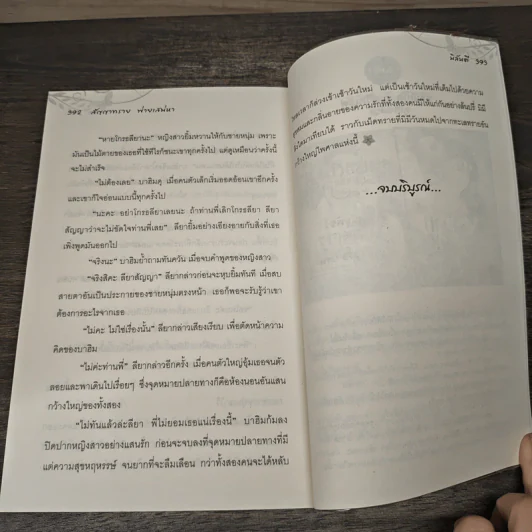 392 สัญญาทราย พ่ายเสน่หา
"หายโกรธลียานะ" หญิงสาวยิ้มหวานให้กับชายหนุ่ม เพราะ
มันเป็นไม้ตายของเธอที่ใช้ทีไรก็ชนะเขาทุกครั้งไป แต่ดูเหมือนว่าครั้งนี้
จะไม่สำเร็จ
"ไม่ต้องเลย" บาฮิมดุ เมื่อคนตัวเล็กเริ่มออดอ้อนเขาอีกครั้ง
และเขาก็ใจอ่อนแบบนี้ทุกครั้งไป
"นะคะ อย่าโกรธลียาเลยนะ ถ้าท่านพี่เลิกโกรธลียา ลียา
สัญญาว่าจะไม่ขัดใจท่านพี่เลย" ลียายิ้มอย่างเอียงอายกับสิ่งที่เธอ
เพิ่งพูดมันออกไป
"จริงนะ" บาฮิมย้ำถามทันควัน เมื่อจบคำพูดของหญิงสาว
"จริงสิคะ ลียาสัญญา" ลียากล่าวก่อนจะหุบยิ้มทันที เมื่อสบ
สายตาอันเป็นประกายของชายหนุ่มตรงหน้า เธอก็พอจะรับรู้ว่าเขา
ต้องการอะไรจากเธอ
"ไม่คะ ไม่ใช่เรื่องนั้น" ลียากล่าวเสียงเรียบ เพื่อตัดหน้าความ
คิดของบาฮิม
"ไม่ค่ะท่านพี่" ลียากล่าวอีกครั้ง เมื่อคนตัวใหญ่อุ้มเธอจนตัว
ลอยและพาเดินไปเรื่อยๆ ซึ่งจุดหมายปลายทางก็คือห้องนอนอันแสน
กว้างใหญ่ของทั้งสอง
"ไม่ทันแล้วล่ะลียา พี่ไม่ยอมเธอแน่เรื่องนี้" บาฮิมก้มลง
ปิดปากหญิงสาวอย่างแสนรัก ก่อนจะจบลงที่จุดหมายปลายทางที่มี
แต่ความสุขหฤหรรษ์ จนยากที่จะลืมเลือน กว่าทั้งสองคนจะได้หลับ
393
ก็ล่วงเข้าเช้าวันใหม่ แต่เป็นเช้าวันใหม่ที่เต็มไปด้วยความ
และกลิ่นอายของความรักที่ทั้งสองคนมีให้แก่กันอย่างล้นปรี่ มิมี
ใดมาเทียบได้ ราวกับเม็ดทรายที่มิมีวันหมดไปจากทะเลทรายอัน
กว้างใหญ่ไพศาลแห่งนี้
...จบบริบูรณ์...